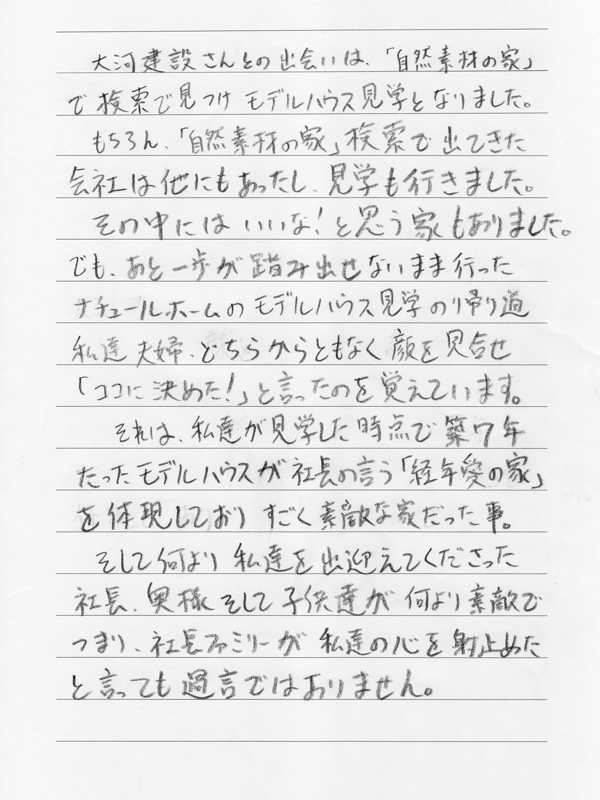 大河建設さんとの出会いは、「自然素材の家」
で検索で見つけモデルハウス見学となりました。
もちろん、「自然素材の家」検索で出てきた
会社は他にもあったし、見学も行きました。
その中にはいいな！と思う家もありました。
でも、あと一歩が踏み出せないまま行った
ナチュールホームのモデルハウス見学の帰り道
私達夫婦、どちらからともなく顔を見合せ
「ココに決めた！」と言ったのを覚えています。
それは、私達が見学した時点で築7年
たったモデルハウスが社長の言う「経年愛の家」
を体現しており すごく素敵な家だった事。
そして何より 私達を出迎えてくださった
社長、奥様そして子供達が 何より素敵で
つまり、社長ファミリーが 私達の心を射止めた
と言っても過言ではありません。